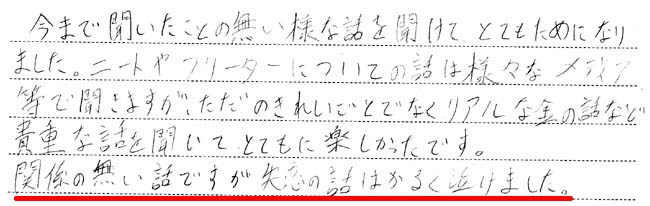 今まで聞いたことの無い様な話を聞けて、とてもためになり
ました。ニートやフリーターについての話は様々なメディア
等で聞きますが、ただのきれいごとでなくリアルな金の話など
貴重な話を聞いて、とてもに楽しかったです。
関係の無い話ですが失恋の話はかるく泣けました。